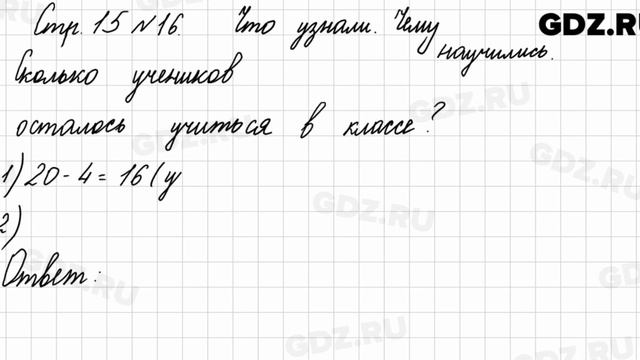 Стр. 15 №16. Что узнали. Чему
научились.
GDZ.RU
Сколько учеников
осталось учиться в классе?
1) 20-4=16(у
2)
Ответ:
GDZ.RU
GDZ.RU
GDZ.RU
GDZ.RU
GDZ.RU
GDZ.RU